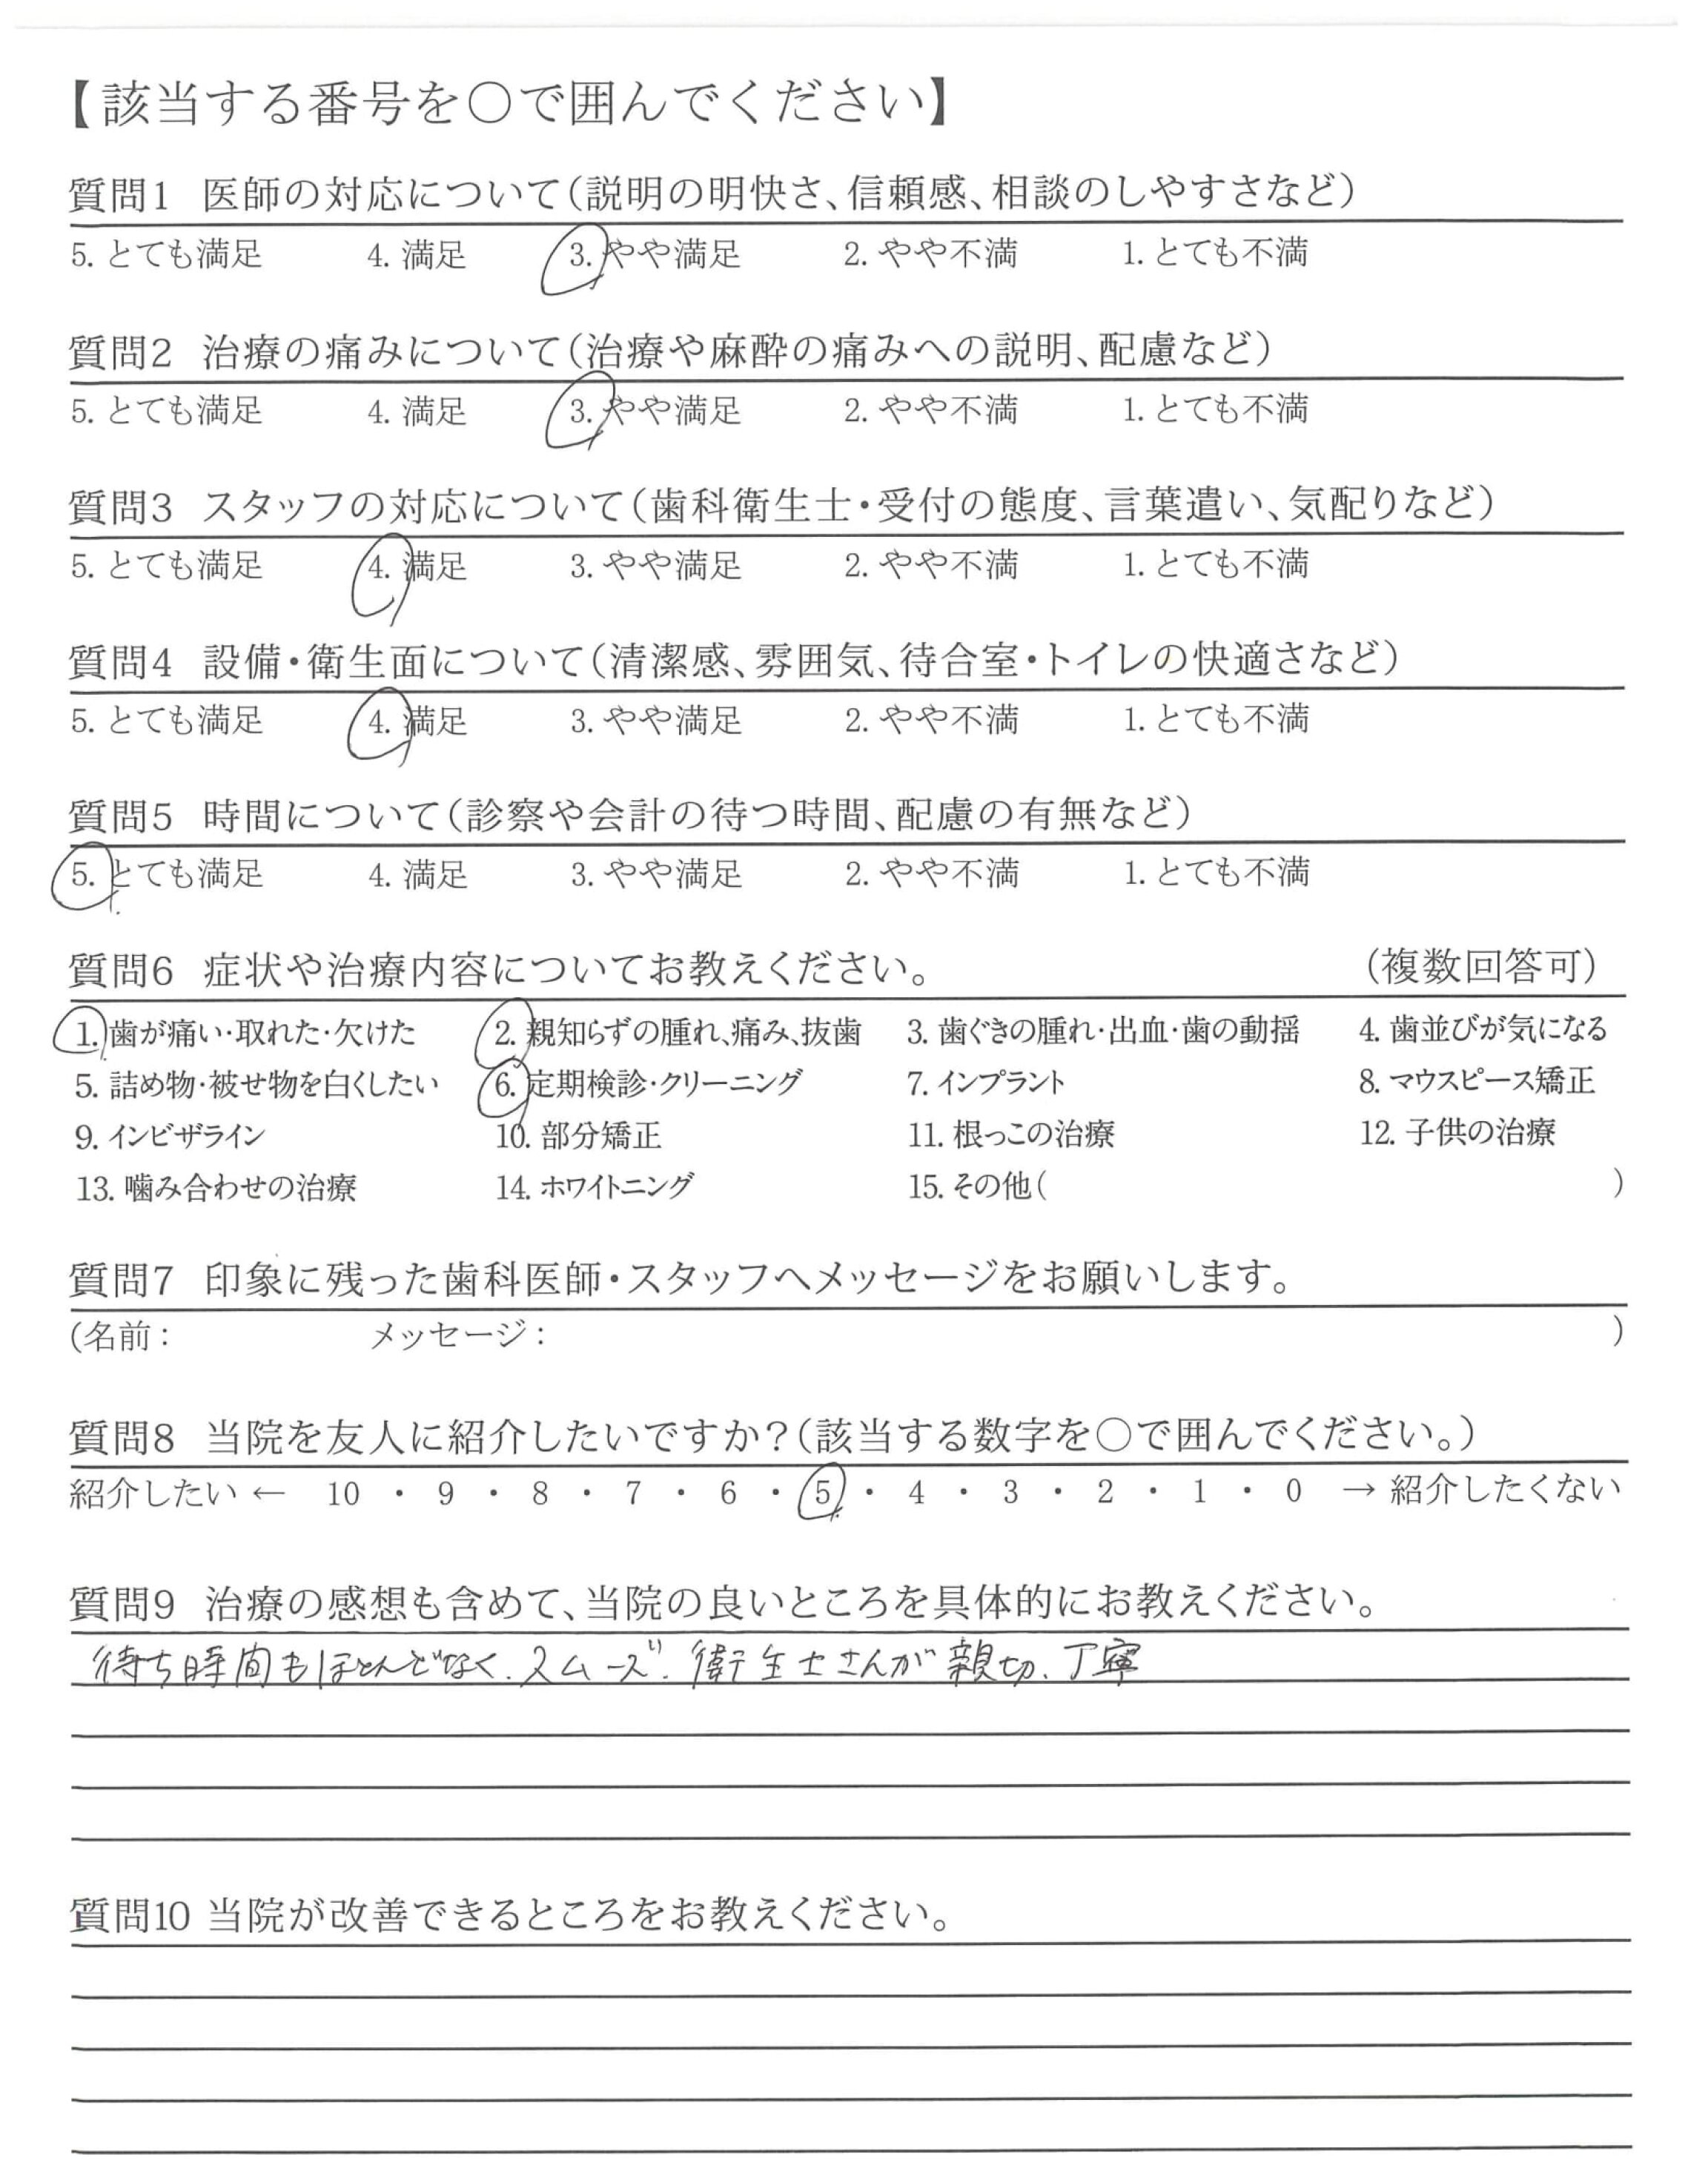 【該当する番号を○で囲んでください】
質問1 医師の対応について(説明の明快さ、信頼感、相談のしやすさなど)
5. とても満足 4. 満足 3. やや満足 2. やや不満 1. とても不満
質問2 治療の痛みについて(治療や麻酔の痛みへの説明、配慮など)
5. とても満足 4. 満足 3. やや満足 2. やや不満 1. とても不満
質問3 スタッフの対応について(歯科衛生士・受付の態度、言葉遣い、気配りなど)
5. とても満足 4. 満足 3. やや満足 2. やや不満 1. とても不満
質問4 設備・衛生面について(清潔感、雰囲気、待合室・トイレの快適さなど)
5. とても満足 4. 満足 3. やや満足 2. やや不満 1. とても不満
質問5 時間について(診察や会計の待つ時間、配慮の有無など)
5. とても満足 4. 満足 3. やや満足 2. やや不満 1. とても不満
質問6 症状や治療内容についてお教えください。 (複数回答可)
1. 歯が痛い・取れた・欠けた 2. 親知らずの腫れ、痛み、抜歯 3. 歯ぐきの腫れ・出血・歯の動揺 4. 歯並びが気になる
5. 詰め物・被せ物を白くしたい 6. 定期検診・クリーニング 7. インプラント 8. マウスピース矯正
9. インビザライン 10. 部分矯正 11. 根っこの治療 12. 子供の治療
13. 噛み合わせの治療 14. ホワイトニング 15. その他( )
質問7 印象に残った歯科医師・スタッフへメッセージをお願いします。
(名前: メッセージ: )
質問8 当院を友人に紹介したいですか?(該当する数字を○で囲んでください。)
紹介したい ← 10 ・ 9 ・ 8 ・ 7 ・ 6 ・ 5 ・ 4 ・ 3 ・ 2 ・ 1 ・ 0 → 紹介したくない
質問9 治療の感想も含めて、当院の良いところを具体的にお教えください。
待ち時間もほとんどなく、スムーズ。衛生士さんが親切、丁寧
質問10 当院が改善できるところをお教えください。